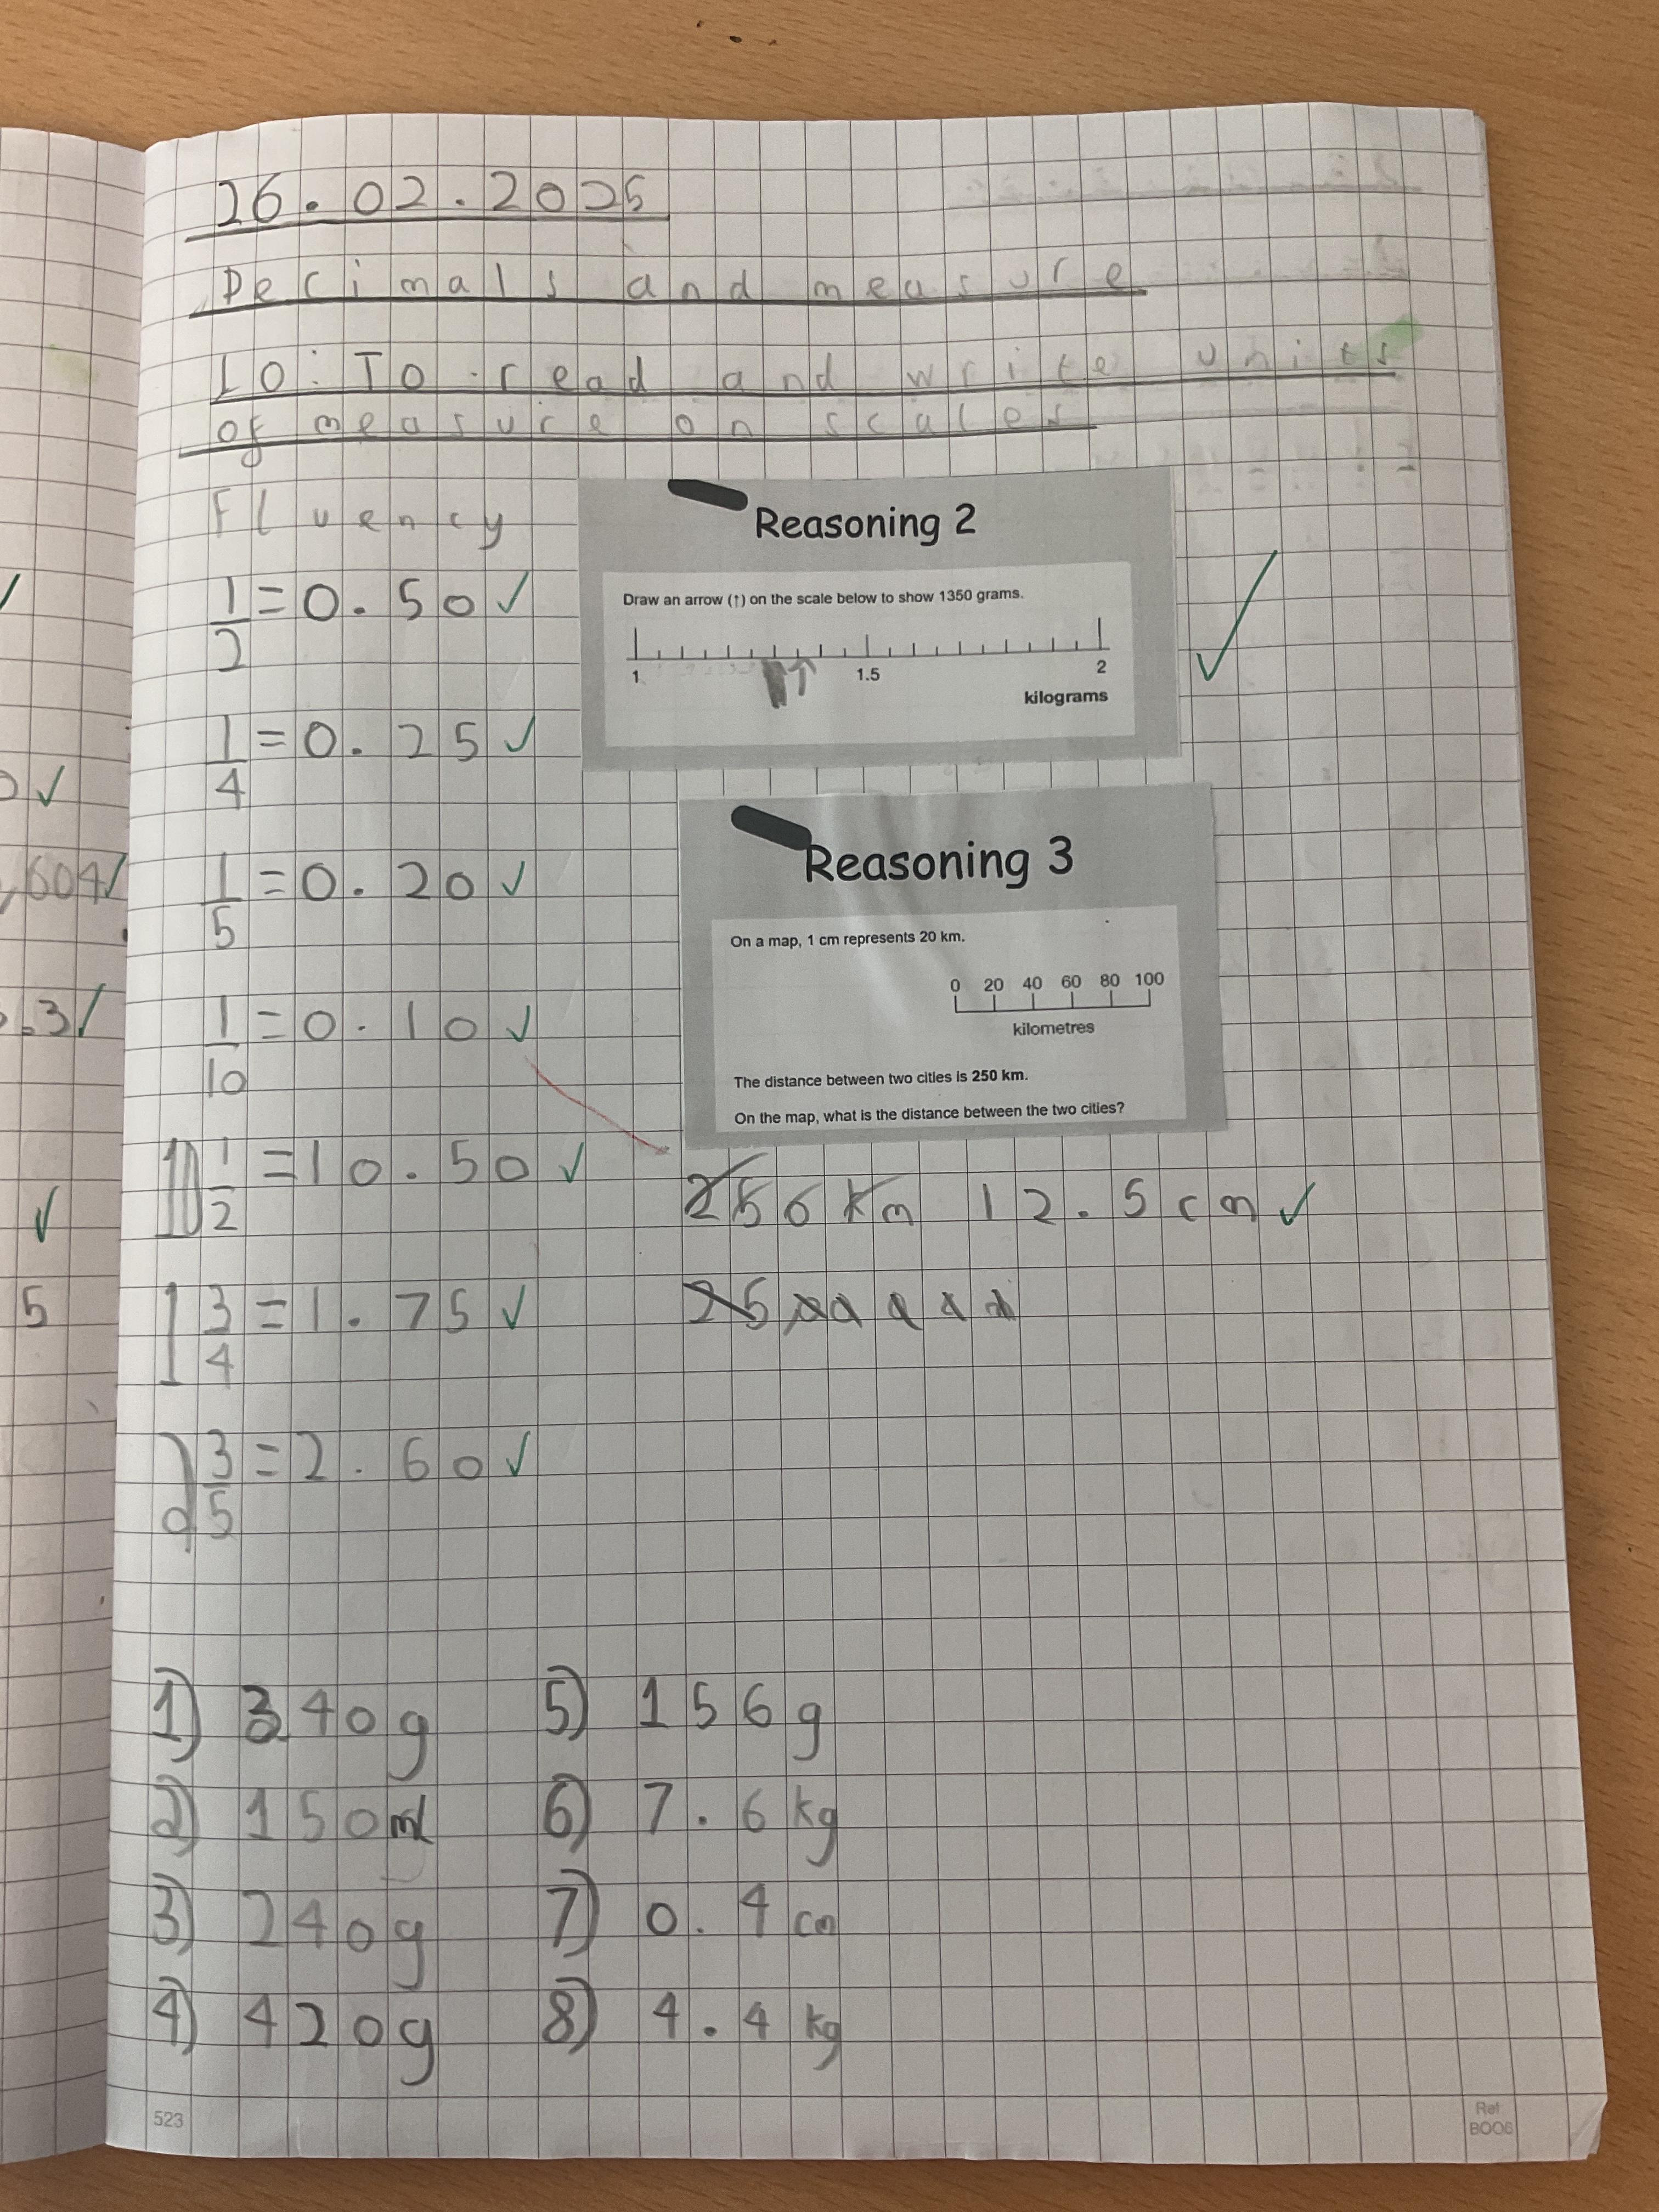 26.02.2025
Decimals and measure
LO: To read and write units
of measure on scales
Fluency
1/2 = 0.50 ✓
1/4 = 0.25 ✓
1/5 = 0.20 ✓
1/10 = 0.10 ✓
10 1/2 = 10.50 ✓
1 3/4 = 1.75 ✓
2 3/5 = 2.60 ✓
Reasoning 2
Draw an arrow (↑) on the scale below to show 1350 grams.
1 1.5 2
kilograms
✓
Reasoning 3
On a map, 1 cm represents 20 km.
0 20 40 60 80 100
kilometres
The distance between two cities is 250 km.
On the map, what is the distance between the two cities?
250 km 12.5 cm ✓
25
1) 340g
2) 150ml
3) 240g
4) 420g
5) 156g
6) 7.6kg
7) 0.4cm
8) 4.4kg
523
Ref
BOO6
✓
✓
,604 ✓
.3 ✓
✓
5